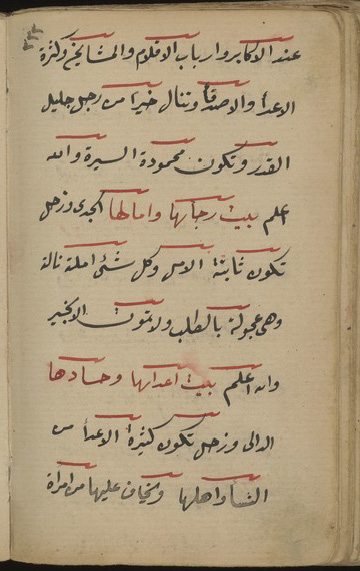 عند الاكابر وارباب الاقلام والمشايخ وكثرة
الاعدا والاصدقا وتنال خيرا من رجل جليل
القدر وتكون محمودة السيرة والله
اعلم بيت رجآيها وامالها الجدى وزحل
تكون ثابتة الامر وكل شئ املته نالته
وهى عجولة بالطلب ولا تموت الا بخير
والله اعلم بيت اعدايها وحسادها
الدالى وزحل تكون كثيرة الاعدا من
النسا واهلها ويخاف عليها من امراة